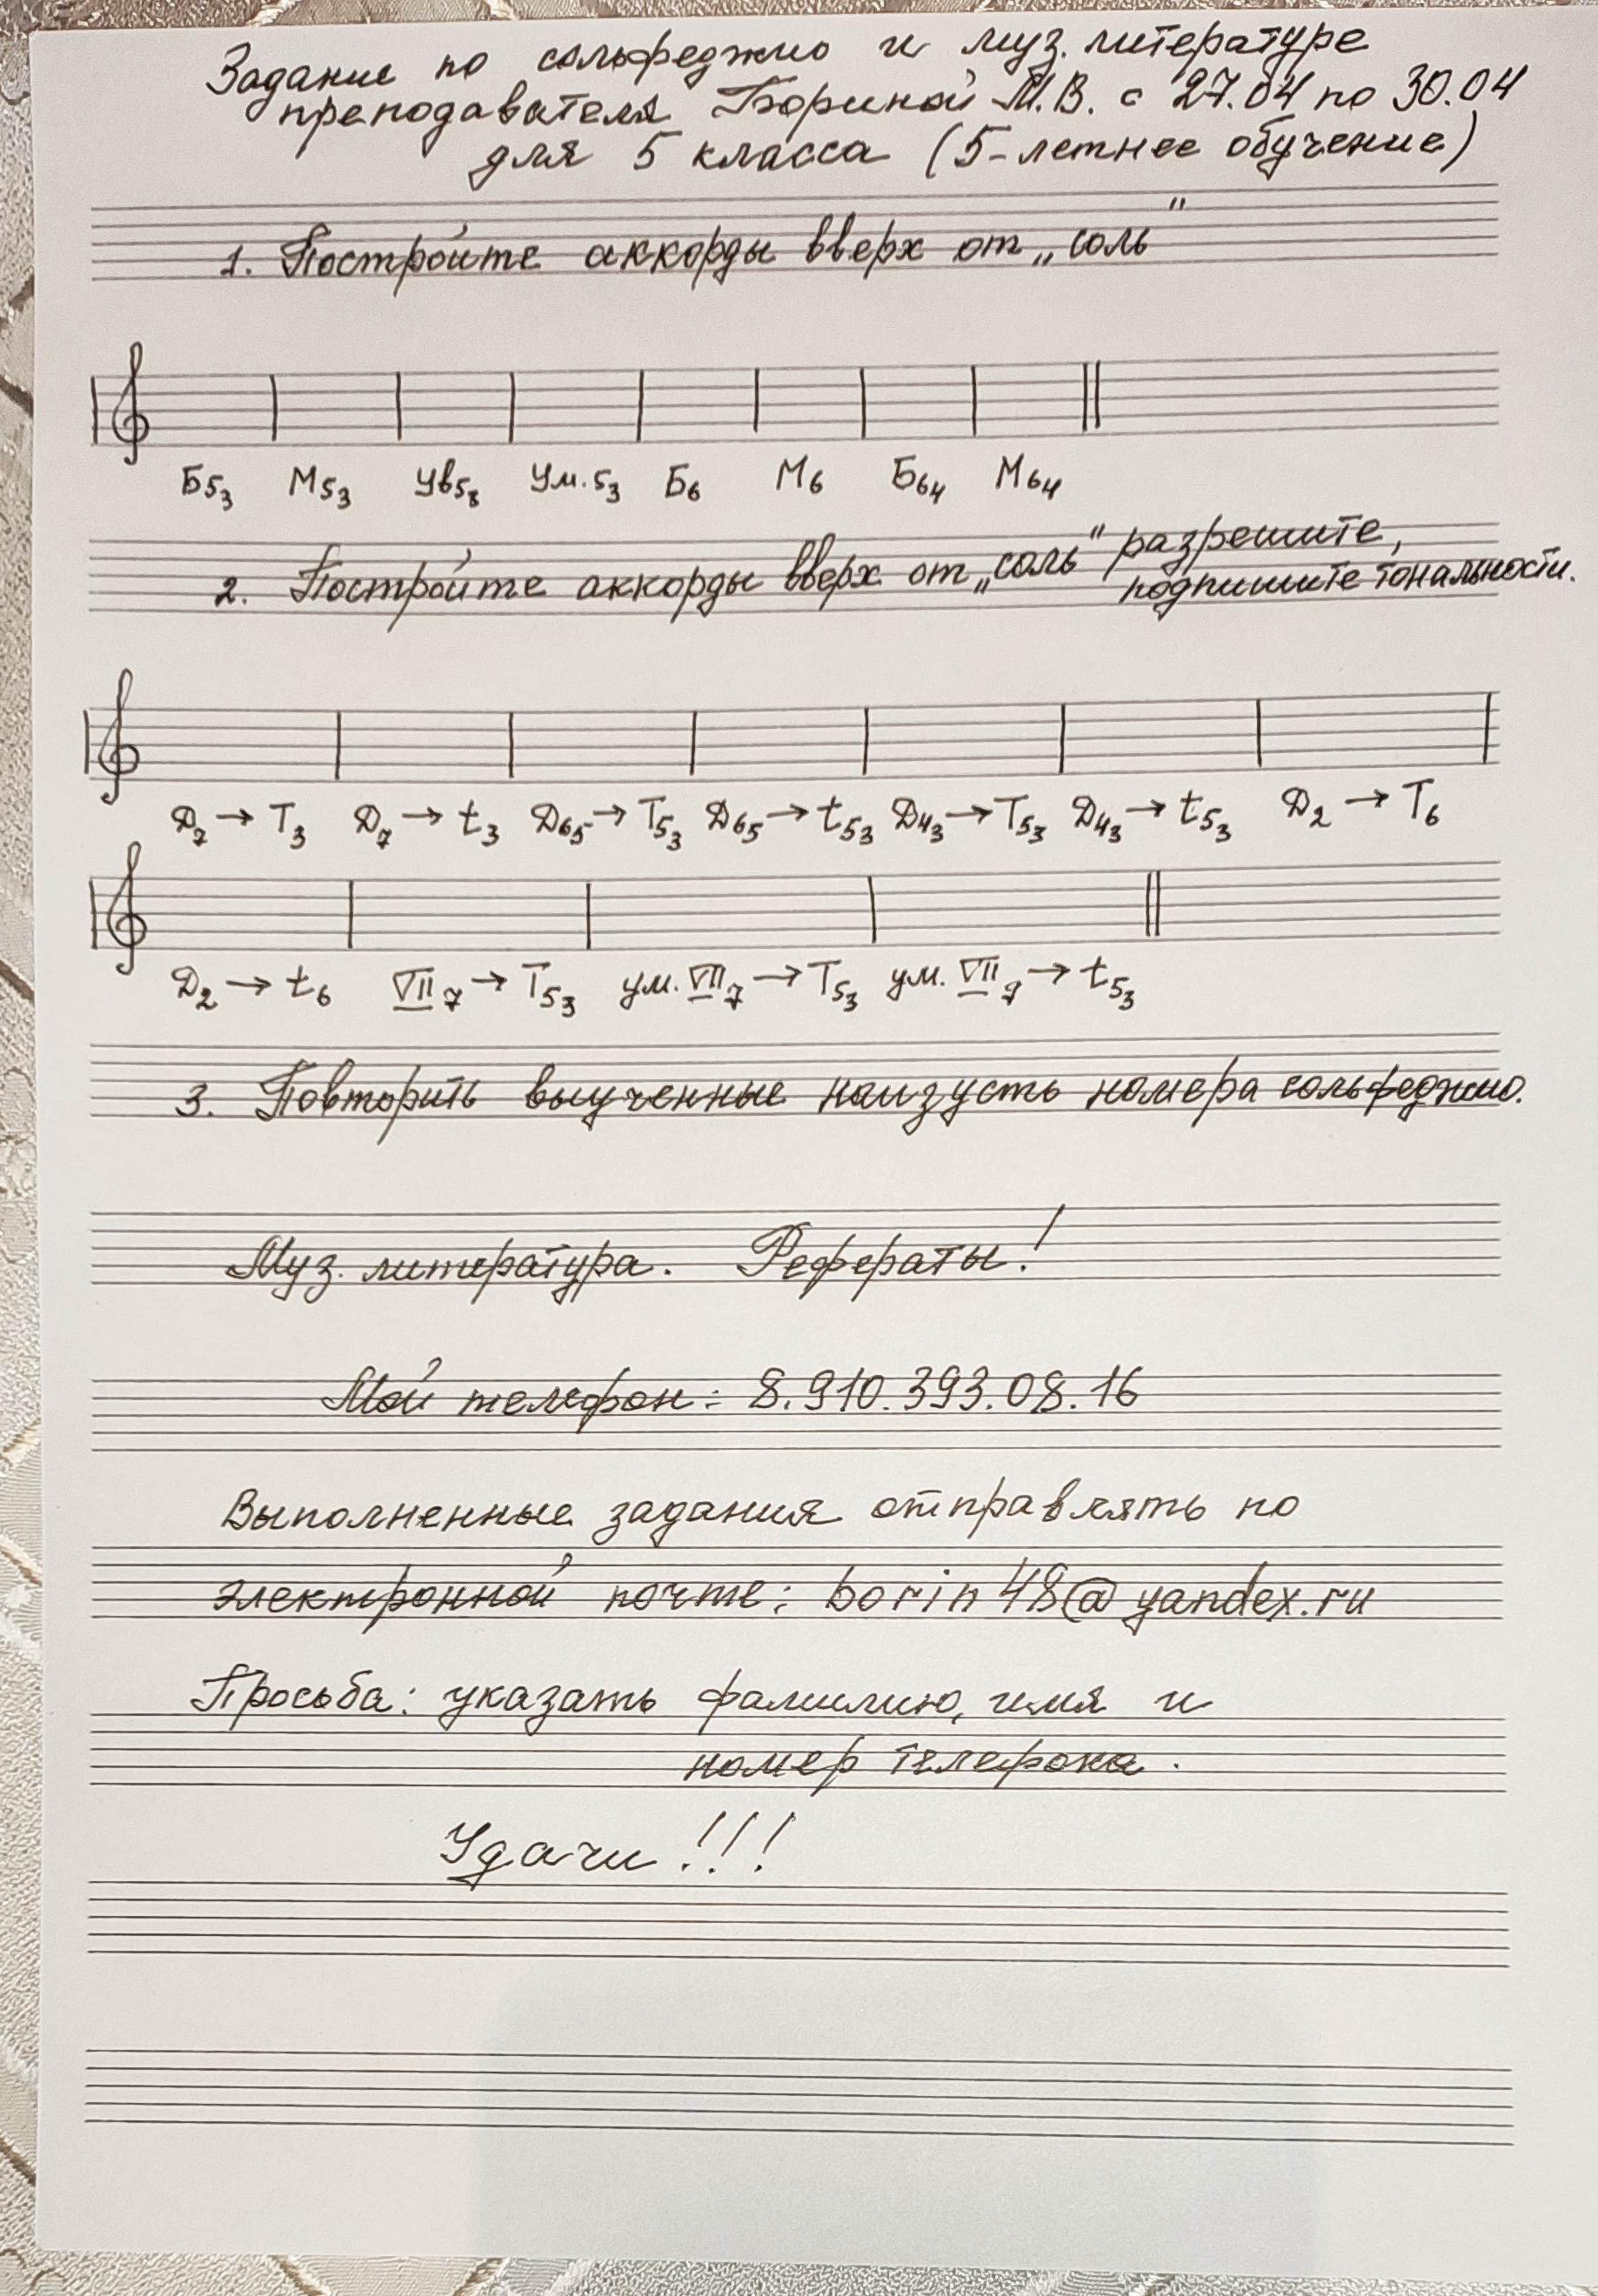 Задание по сольфеджио и муз. литературе
преподавателя Бориной М.В. с 27.04 по 30.04
для 5 класса (5-летнее обучение)
1. Постройте аккорды вверх от „соль"
Б53 М53 Ув53 Ум.53 Б6 М6 Б64 М64
2. Постройте аккорды вверх от „соль" разрешите,
подпишите тональности.
Д7 → Т3 Д7 → t3 Д65 → Т53 Д65 → t53 Д43 → Т53 Д43 → t53 Д2 → Т6
Д2 → t6 VII7 → Т53 ум. VII7 → Т53 ум. VII7 → t53
3. Повторить выученные наизусть номера сольфеджио.
Муз. литература. Рефераты!
Мой телефон: 8.910.393.08.16
Выполненные задания отправлять по
электронной почте: borin48@yandex.ru
Просьба: указать фамилию, имя и
номер телефона.
Удачи!!!